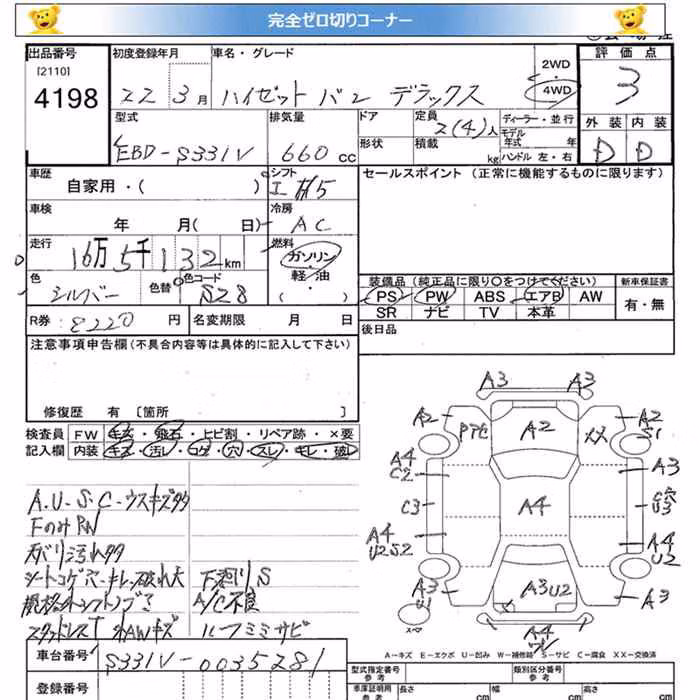 完全ゼロ切りコーナー
出品番号 初度登録年月 車名・グレード 2WD 評価点
[2110] 22 3月 ハイゼット バン デラックス 4WD 3
4198
型式 排気量 ドア 定員 2(4)人 ディーラー・並行 外装 内装
モデル年式 年
EBD-S331V 660cc 形状 積載 kg ハンドル 左・右 D D
車歴 シフト セールスポイント (正常に機能するものに限ります)
自家用・( )
車検 冷房
年 月( 日) AC
走行 燃料
16万5千132km ガソリン
軽・油
色 色替 色コード ( )
シルバー S28
装備品 (純正品に限り〇をつけてください) 新車保証書
PS PW ABS エアB AW 有・無
SR ナビ TV 本革
R券 8220円 名変期限 月 日
後日品
注意事項申告欄 (不具合内容等は具体的に記入して下さい)
修復歴 有 [箇所 ]
検査員 FW キズ・飛石・ヒビ割・リペア跡・×要
記入欄 内装 キズ・汚レ・コゲ・穴・スレ・キレ・破レ
A.U-S.C-ウスキズ多
FのみPW
天バリ汚れ多
シートコゲ穴・キレ・破れ大 下廻りS
規格外シフトノブ A/C不良
スタッドレス 社外AWキズ ルーフミミサビ
車台番号 S331V-0035281
登録番号
A3 A3
A2 A2 A2
S1
A4 A3
C2
C3 A4 U3
A4 A4
U2S2 U2
A3 A3U2 A3
U1
スペア
A4
A-キズ E-エクボ U-凹み W-補修跡 S-サビ C-腐食 XX-交換済
型式指定番号 参考 類別区分番号 参考
車庫証明用 参考 長さ cm 幅 cm 高さ cm